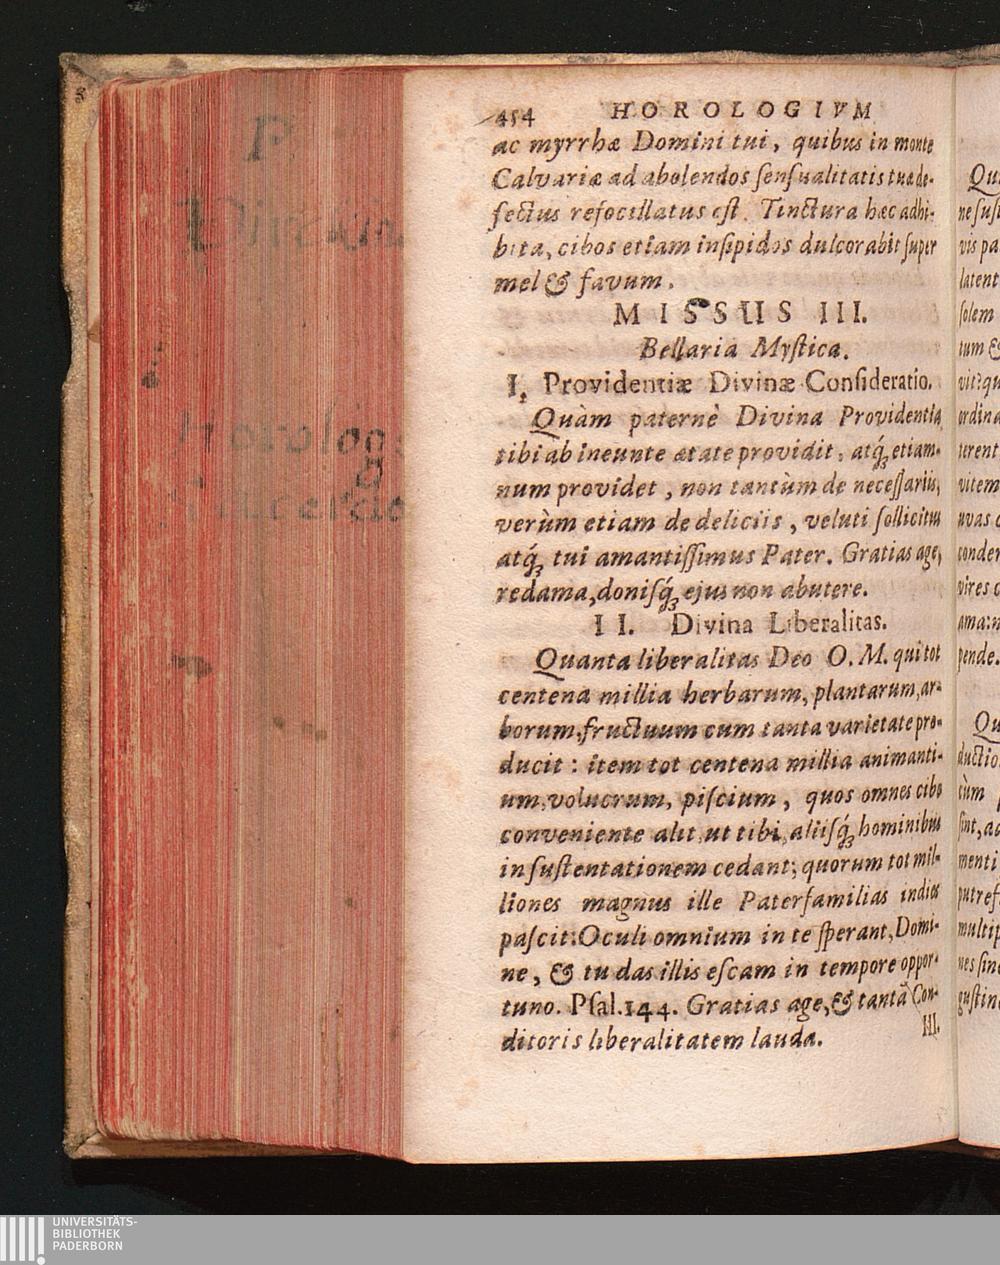 454 HOROLOGIVM
ac myrrhæ Domini tui, quibus in monte
Calvariæ ad abolendos ſenſualitatis tuæ de-
fectus refocillatus eſt. Tinctura hæc adhi-
bita, cibos etiam inſipidos dulcorabit ſuper
mel & favum.
MISSUS III.
Bellaria Myſtica.
I, Providentiæ Divinæ Conſideratio.
Quàm paternè Divina Providentia
tibi ab ineunte ætate providit, atq́; etiam-
num providet, non tantùm de neceſſariis,
verùm etiam de deliciis, veluti ſollicitus
atq́; tui amantiſſimus Pater. Gratias age,
redama, doniſq́; ejus non abutere.
II. Divina Liberalitas.
Quanta liberalitas Deo O. M. qui tot
centena millia herbarum, plantarum, ar-
borum, fructuum cum tanta varietate pro-
ducit: item tot centena millia animanti-
um, volucrum, piſcium, quos omnes cibo
conveniente alit, ut tibi, aliiſq́; hominibus
in ſuſtentationem cedant; quorum tot mil-
liones magnus ille Paterfamilias indies
paſcit: Oculi omnium in te ſperant, Domi-
ne, & tu das illis eſcam in tempore oppor-
tuno. Pſal. 144. Gratias age, & tantã Con-
ditoris liberalitatem lauda.
III.
UNIVERSITÄTS-
BIBLIOTHEK
PADERBORN